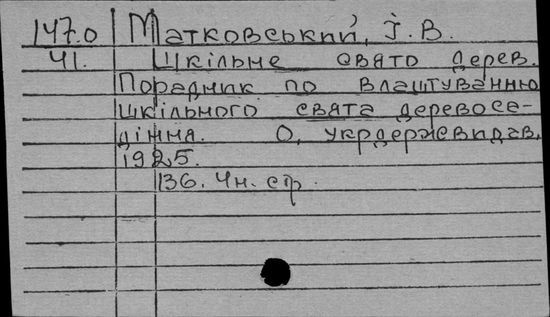 147.0 Матковський, І. В.
41. Шкільне свято дерев.
Порадник по влаштуванню
шкільного свята деревосе-
діння. О, укрдержвидав,
1925.
136. Чн. стр.